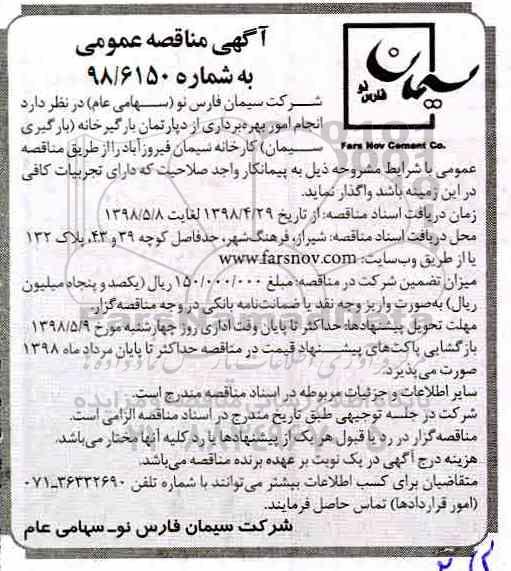 آگهی مناقصه عمومی
به شماره ۹۸/۶۱۵۰
سیمان
فارس نو
Fars Nov Cement Co.
شرکت سیمان فارس نو (سهامی عام) در نظر دارد
انجام امور بهره‌برداری از دپارتمان بارگیرخانه (بارگیری
سیمان) کارخانه سیمان فیروزآباد را از طریق مناقصه
عمومی با شرایط مشروحه ذیل به پیمانکار واجد صلاحیت که دارای تجربیات کافی
در این زمینه باشد واگذار نماید.
زمان دریافت اسناد مناقصه: از تاریخ ۱۳۹۸/۴/۲۹ لغایت ۱۳۹۸/۵/۸
محل دریافت اسناد مناقصه: شیراز، فرهنگ‌شهر، حدفاصل کوچه ۳۹ و ۴۳، پلاک ۱۳۲
یا از طریق وب‌سایت: www.farsnov.com
میزان تضمین شرکت در مناقصه: مبلغ ۱۵۰/۰۰۰/۰۰۰ ریال (یکصد و پنجاه میلیون
ریال) به‌صورت واریز وجه نقد یا ضمانت‌نامه بانکی در وجه مناقصه‌گزار.
مهلت تحویل پیشنهادها: حداکثر تا پایان وقت اداری روز چهارشنبه مورخ ۱۳۹۸/۵/۹
بازگشایی پاکت‌های پیشنهاد قیمت در مناقصه حداکثر تا پایان مرداد ماه ۱۳۹۸
صورت می‌پذیرد.
سایر اطلاعات و جزئیات مربوطه در اسناد مناقصه مندرج است.
شرکت در جلسه توجیهی طبق تاریخ مندرج در اسناد مناقصه الزامی است.
مناقصه‌گزار در رد یا قبول هر یک از پیشنهادها یا رد کلیه آنها مختار می‌باشد.
هزینه درج آگهی در یک نوبت بر عهده برنده مناقصه می‌باشد.
متقاضیان برای کسب اطلاعات بیشتر می‌توانند با شماره تلفن ۳۶۳۳۲۶۹۰-۰۷۱
(امور قراردادها) تماس حاصل فرمایند.
شرکت سیمان فارس نو- سهامی عام